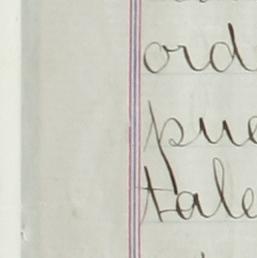 ord
pue
tale